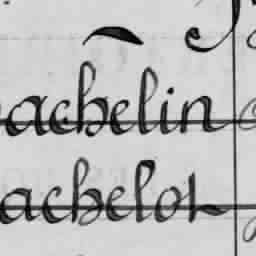 achelin
achelot